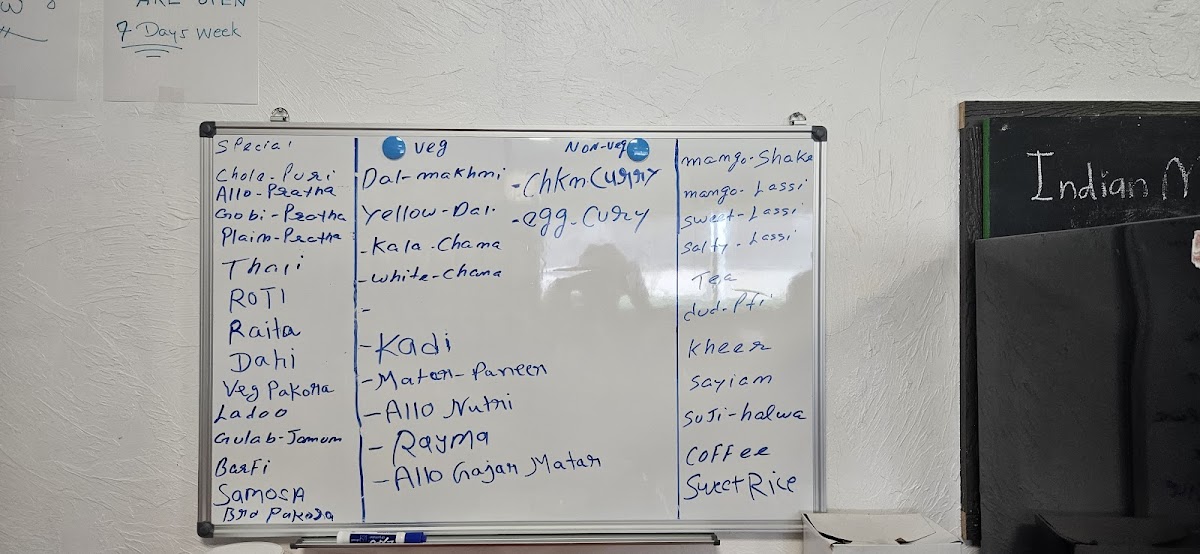 ARE OPEN
7 Days Week
Special
Chola-Puri
Allo-Pratha
Gobi-Pratha
Plain-Pratha
Thali
ROTI
Raita
Dahi
Veg Pakora
Ladoo
Gulab-Jamum
Barfi
SamosA
Brd Pakora
veg
Dal-makhni
Yellow-Dal.
-Kala-Chana
-white-Chana
-
-Kadi
-Matar-Paneer
-Allo Nutri
-Rayma
-Allo Gajar Matar
Non-veg
-Chkn Curry
-egg-Curry
mango-Shake
mango-Lassi
sweet-Lassi
salty-Lassi
Tea
dud-Pti
Kheer
sayiam
suji-halwa
Coffee
Sweet Rice
Indian M